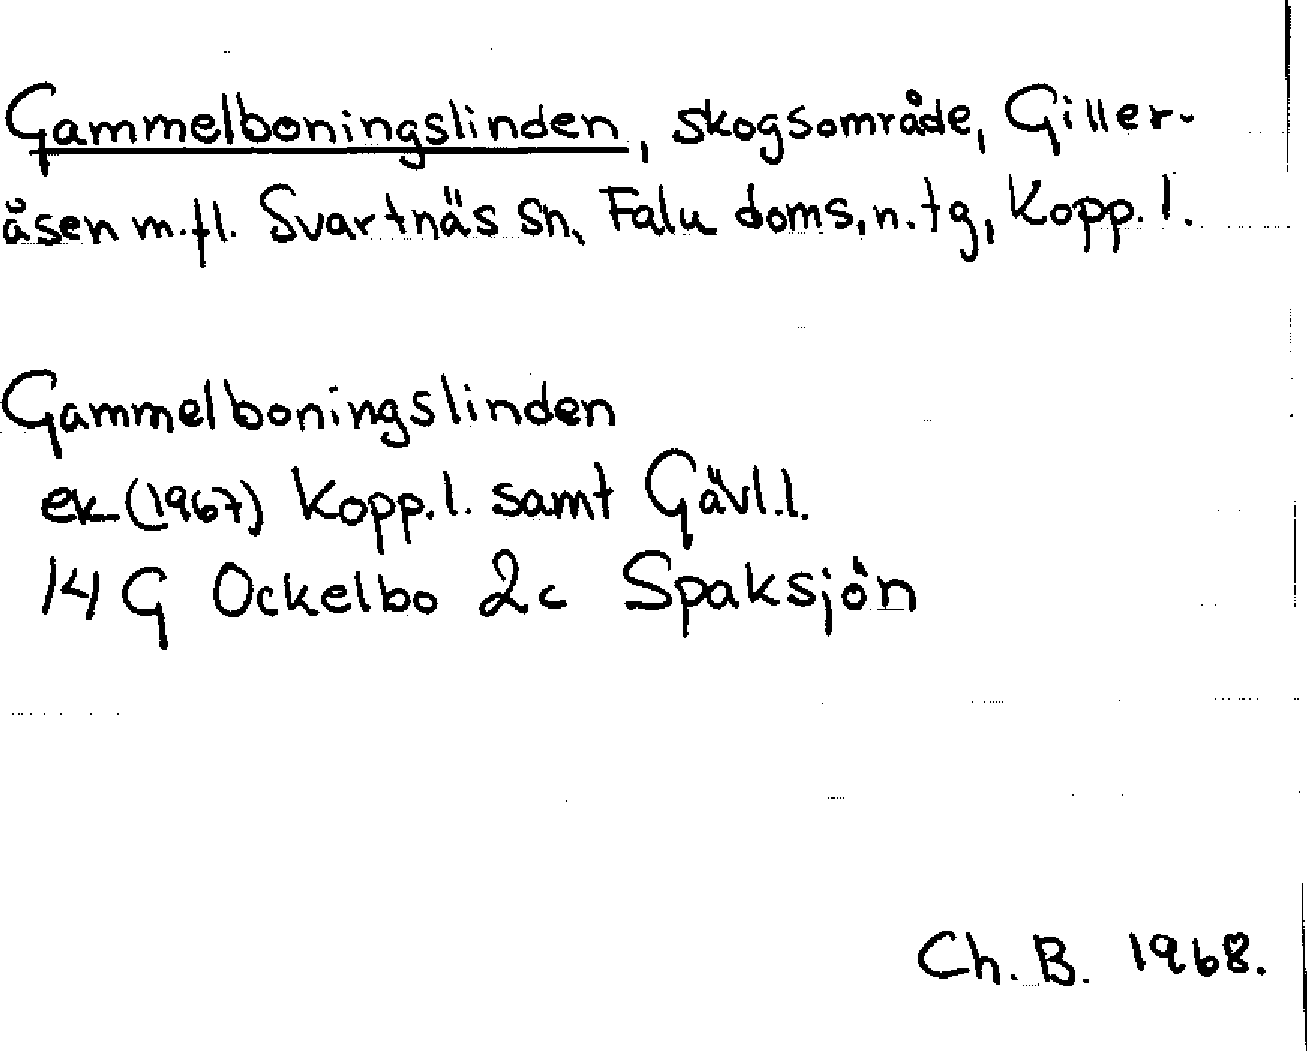 Gammelboningslinden, skogsområde, Giller-
åsen m.fl. Svartnäs sn, Falu doms, n. tg, Kopp. l.
Gammelboningslinden
ek (1967) Kopp. l. samt Gävl. l.
14 G Ockelbo 2c Spaksjön
Ch. B. 1968.